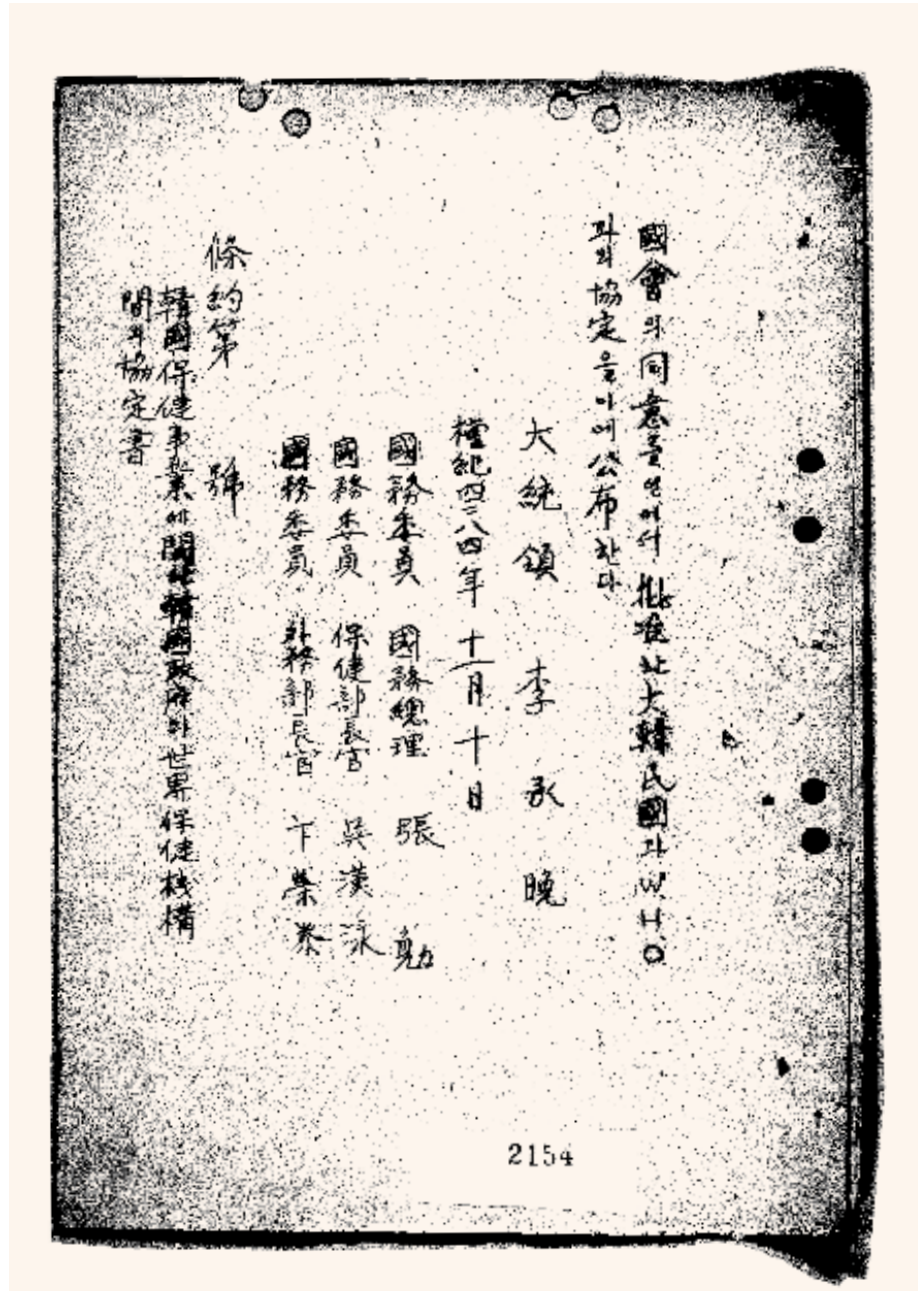 國會의同意를얻어서批准한大韓民國과W.H.O
과의協定을이에公布한다
大統領 李承晩
檀紀四二八四年十一月十日
國務委員 國務總理 張勉
國務委員 保健部長官 吳漢泳
國務委員 外務部長官 卞榮泰
條約第 號
韓國保健事業에關한韓國政府와世界保健機構
間의協定書
2154